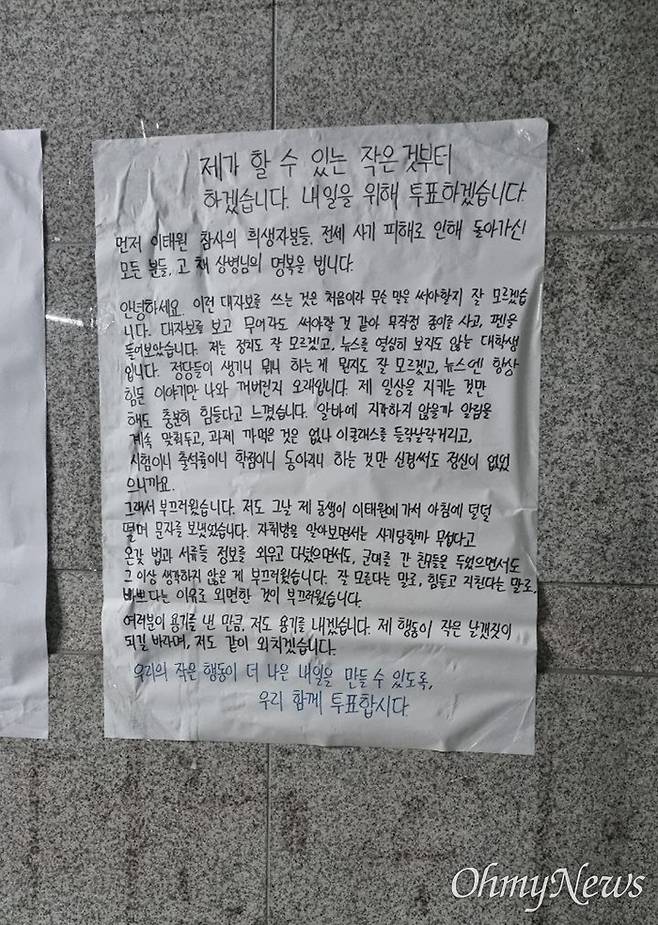 제가 할 수 있는 작은것부터
하겠습니다. 내일을 위해 투표하겠습니다.
먼저 이태원 참사의 희생자분들, 전세 사기 피해로 인해 돌아가신
모든 분들, 고 채 상병님의 명복을 빕니다.
안녕하세요. 이런 대자보를 쓰는 것은 처음이라 무슨 말을 써야할지 잘 모르겠습
니다. 대자보를 보고 무어라도 써야할 것 같아 무작정 종이를 사고, 펜을
들어보았습니다. 저는 정치도 잘 모르겠고, 뉴스를 열심히 보지도 않는 대학생
입니다. 정당들이 생기니 뭐니 하는게 뭔지도 잘 모르겠고, 뉴스엔 항상
힘든 이야기만 나와 꺼버린지 오래입니다. 제 일상을 지키는 것만
해도 충분히 힘들다고 느꼈습니다. 알바에 지각하지 않을까 알람을
계속 맞춰두고, 과제 까먹은 것은 없나 이클래스를 들락날락거리고,
시험이니 출석률이니 학점이니 동아리니 하는 것만 신경써도 정신이 없었
으니까요.
그래서 부끄러웠습니다. 저도 그날 제 동생이 이태원에 가서 아침에 덜덜
떨며 문자를 보냈었습니다. 자취방을 알아보면서는 사기당할까 무섭다고
온갖 법과 서류들 정보를 외우고 다녔으면서도, 군대를 간 친구들을 두었으면서도
그 이상 생각하지 않은 게 부끄러웠습니다. 잘 모른다는 말로, 힘들고 지친다는 말로,
바쁘다는 이유로 외면한 것이 부끄러웠습니다.
여러분이 용기를 낸 만큼, 저도 용기를 내겠습니다. 제 행동이 작은 날갯짓이
되길 바라며, 저도 같이 외치겠습니다.
우리의 작은 행동이 더 나은 내일을 만들 수 있도록,
우리 함께 투표합시다.
OhmyNews